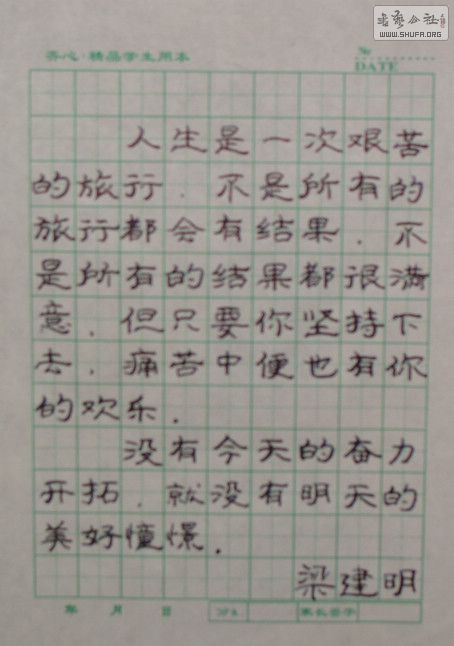 书艺公社
WWW.SHUFA.ORG
齐心·精品学生用本
№
DATE
人生是一次艰苦
的旅行．不是所有的
旅行都会有结果．不
是所有的结果都很满
意．但只要你坚持下
去．痛苦中便也有你
的欢乐．
没有今天的奋力
开拓．就没有明天的
美好憧憬．
梁建明
年 月 日 家长签字